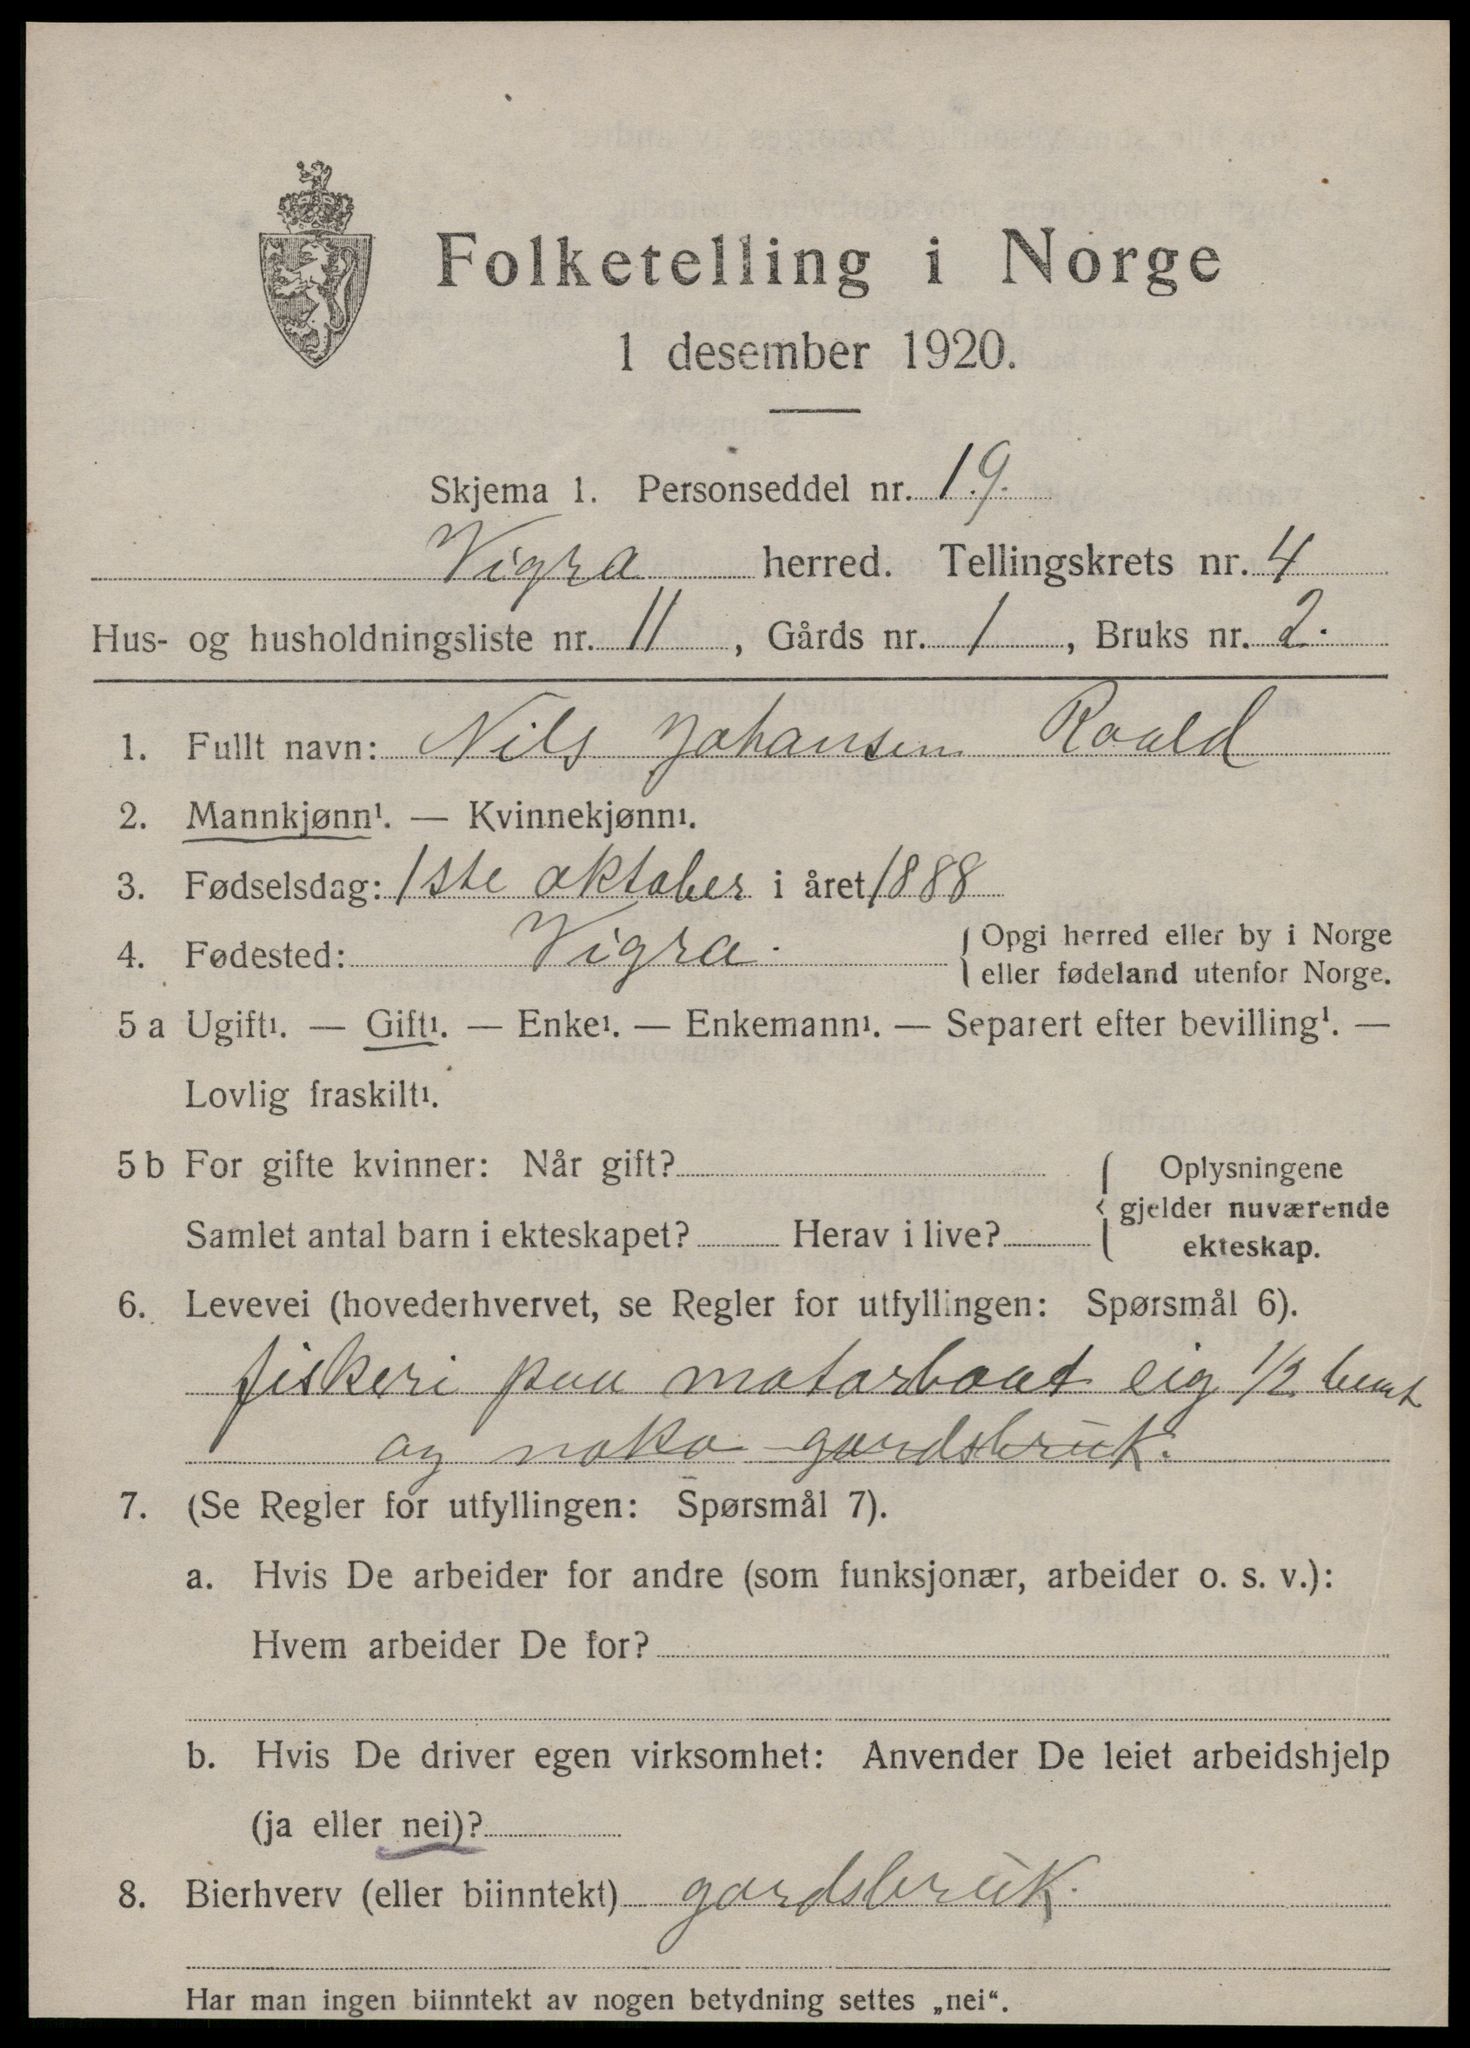 Folketelling i Norge
1 desember 1920.
Skjema 1. Personseddel nr. 19.
Vigra herred. Tellingskrets nr. 4
Hus- og husholdningsliste nr. 11, Gårds nr. 1, Bruks nr. 2.
1. Fullt navn: Nils Johansen Roald
2. Mannkjønn¹. — Kvinnekjønn¹.
3. Fødselsdag: 1ste oktober i året 1888
4. Fødested: Vigra. { Opgi herred eller by i Norge
eller fødeland utenfor Norge.
5 a Ugift¹. — Gift¹. — Enke¹. — Enkemann¹. — Separert efter bevilling¹. —
Lovlig fraskilt¹.
5 b For gifte kvinner: Når gift? { Oplysningene
gjelder nuværende
Samlet antal barn i ekteskapet? Herav i live? ekteskap.
6. Levevei (hovederhvervet, se Regler for utfyllingen: Spørsmål 6).
fiskeri paa motorbaat eig 1/2
og noko gardsbruk.
7. (Se Regler for utfyllingen: Spørsmål 7).
a. Hvis De arbeider for andre (som funksjonær, arbeider o. s. v.):
Hvem arbeider De for?
b. Hvis De driver egen virksomhet: Anvender De leiet arbeidshjelp
(ja eller nei)?
8. Bierhverv (eller biinntekt) gardsbruk.
Har man ingen biinntekt av nogen betydning settes „nei“.